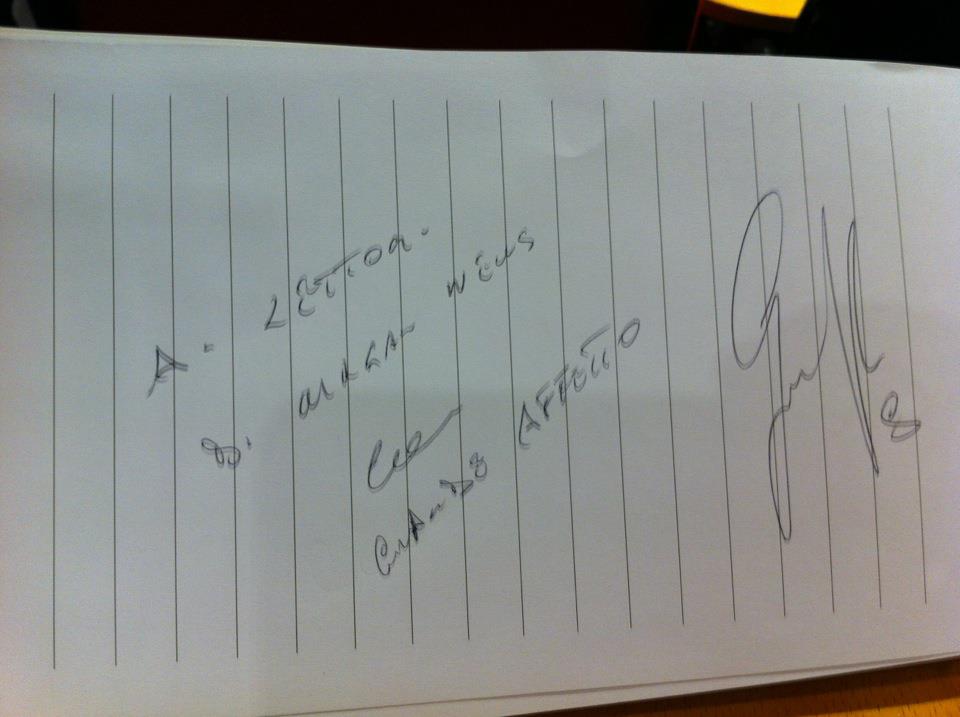 Ai LETTORi
Di MILAN NEWS
Con
GRANDE AFFETTO
8